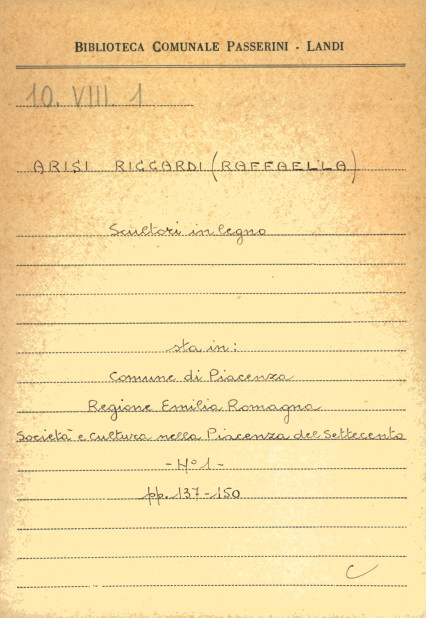 BIBLIOTECA COMUNALE PASSERINI - LANDI
10. VIII. 1
ARISI RICCARDI (RAFFAELLA)
Scultori in legno
sta in:
Comune di Piacenza
Regione Emilia Romagna
Società e cultura nella Piacenza del Settecento
- N° 1 -
pp. 137-150
C